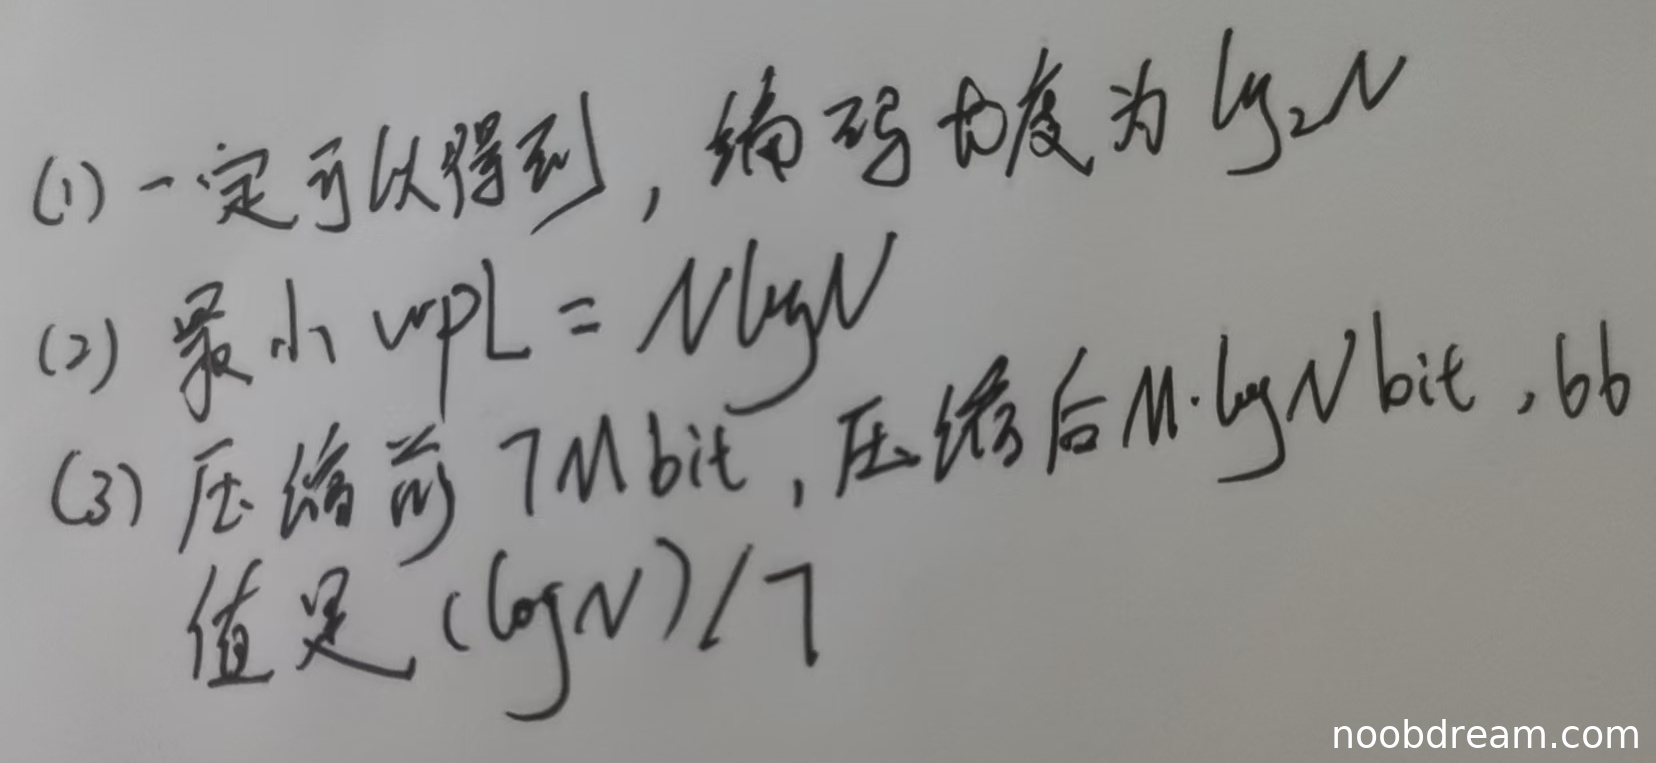 (1) 一定可以得到，编码长度为 log₂N
(2) 最小 WPL = NlogN
(3) 压缩前 7M bit，压缩后 M·logN bit，比
值是 (logN)/7
noobdream.com